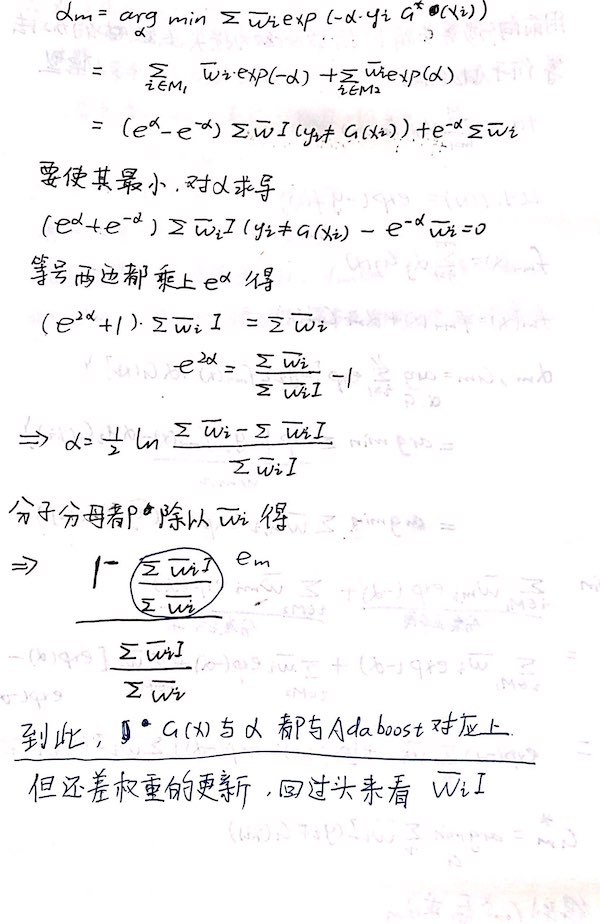 αm = arg min Σ w̅i exp(-α·yi G*(xi))
α
= Σ w̅i·exp(-α) + Σ w̅i exp(α)
i∈M1 i∈M2
= (e^α - e^-α) Σ w̅ I(yi ≠ G(xi)) + e^-α Σ w̅i
要使其最小,对α求导
(e^α + e^-α) Σ w̅i I(yi ≠ G(xi) - e^-α w̅i = 0
等号两边都乘上 e^α 得
(e^2α + 1)· Σ w̅i I = Σ w̅i
e^2α = Σ w̅i / Σ w̅i I - 1
⇒ α = 1/2 ln (Σ w̅i - Σ w̅i I) / Σ w̅i I
分子分母都除以 w̅i 得
⇒ 1 - Σ w̅i I / Σ w̅i em
Σ w̅i I
Σ w̅i
到此, G(x)与α 都与Adaboost对应上
但还差权重的更新,回过头来看 w̅i I